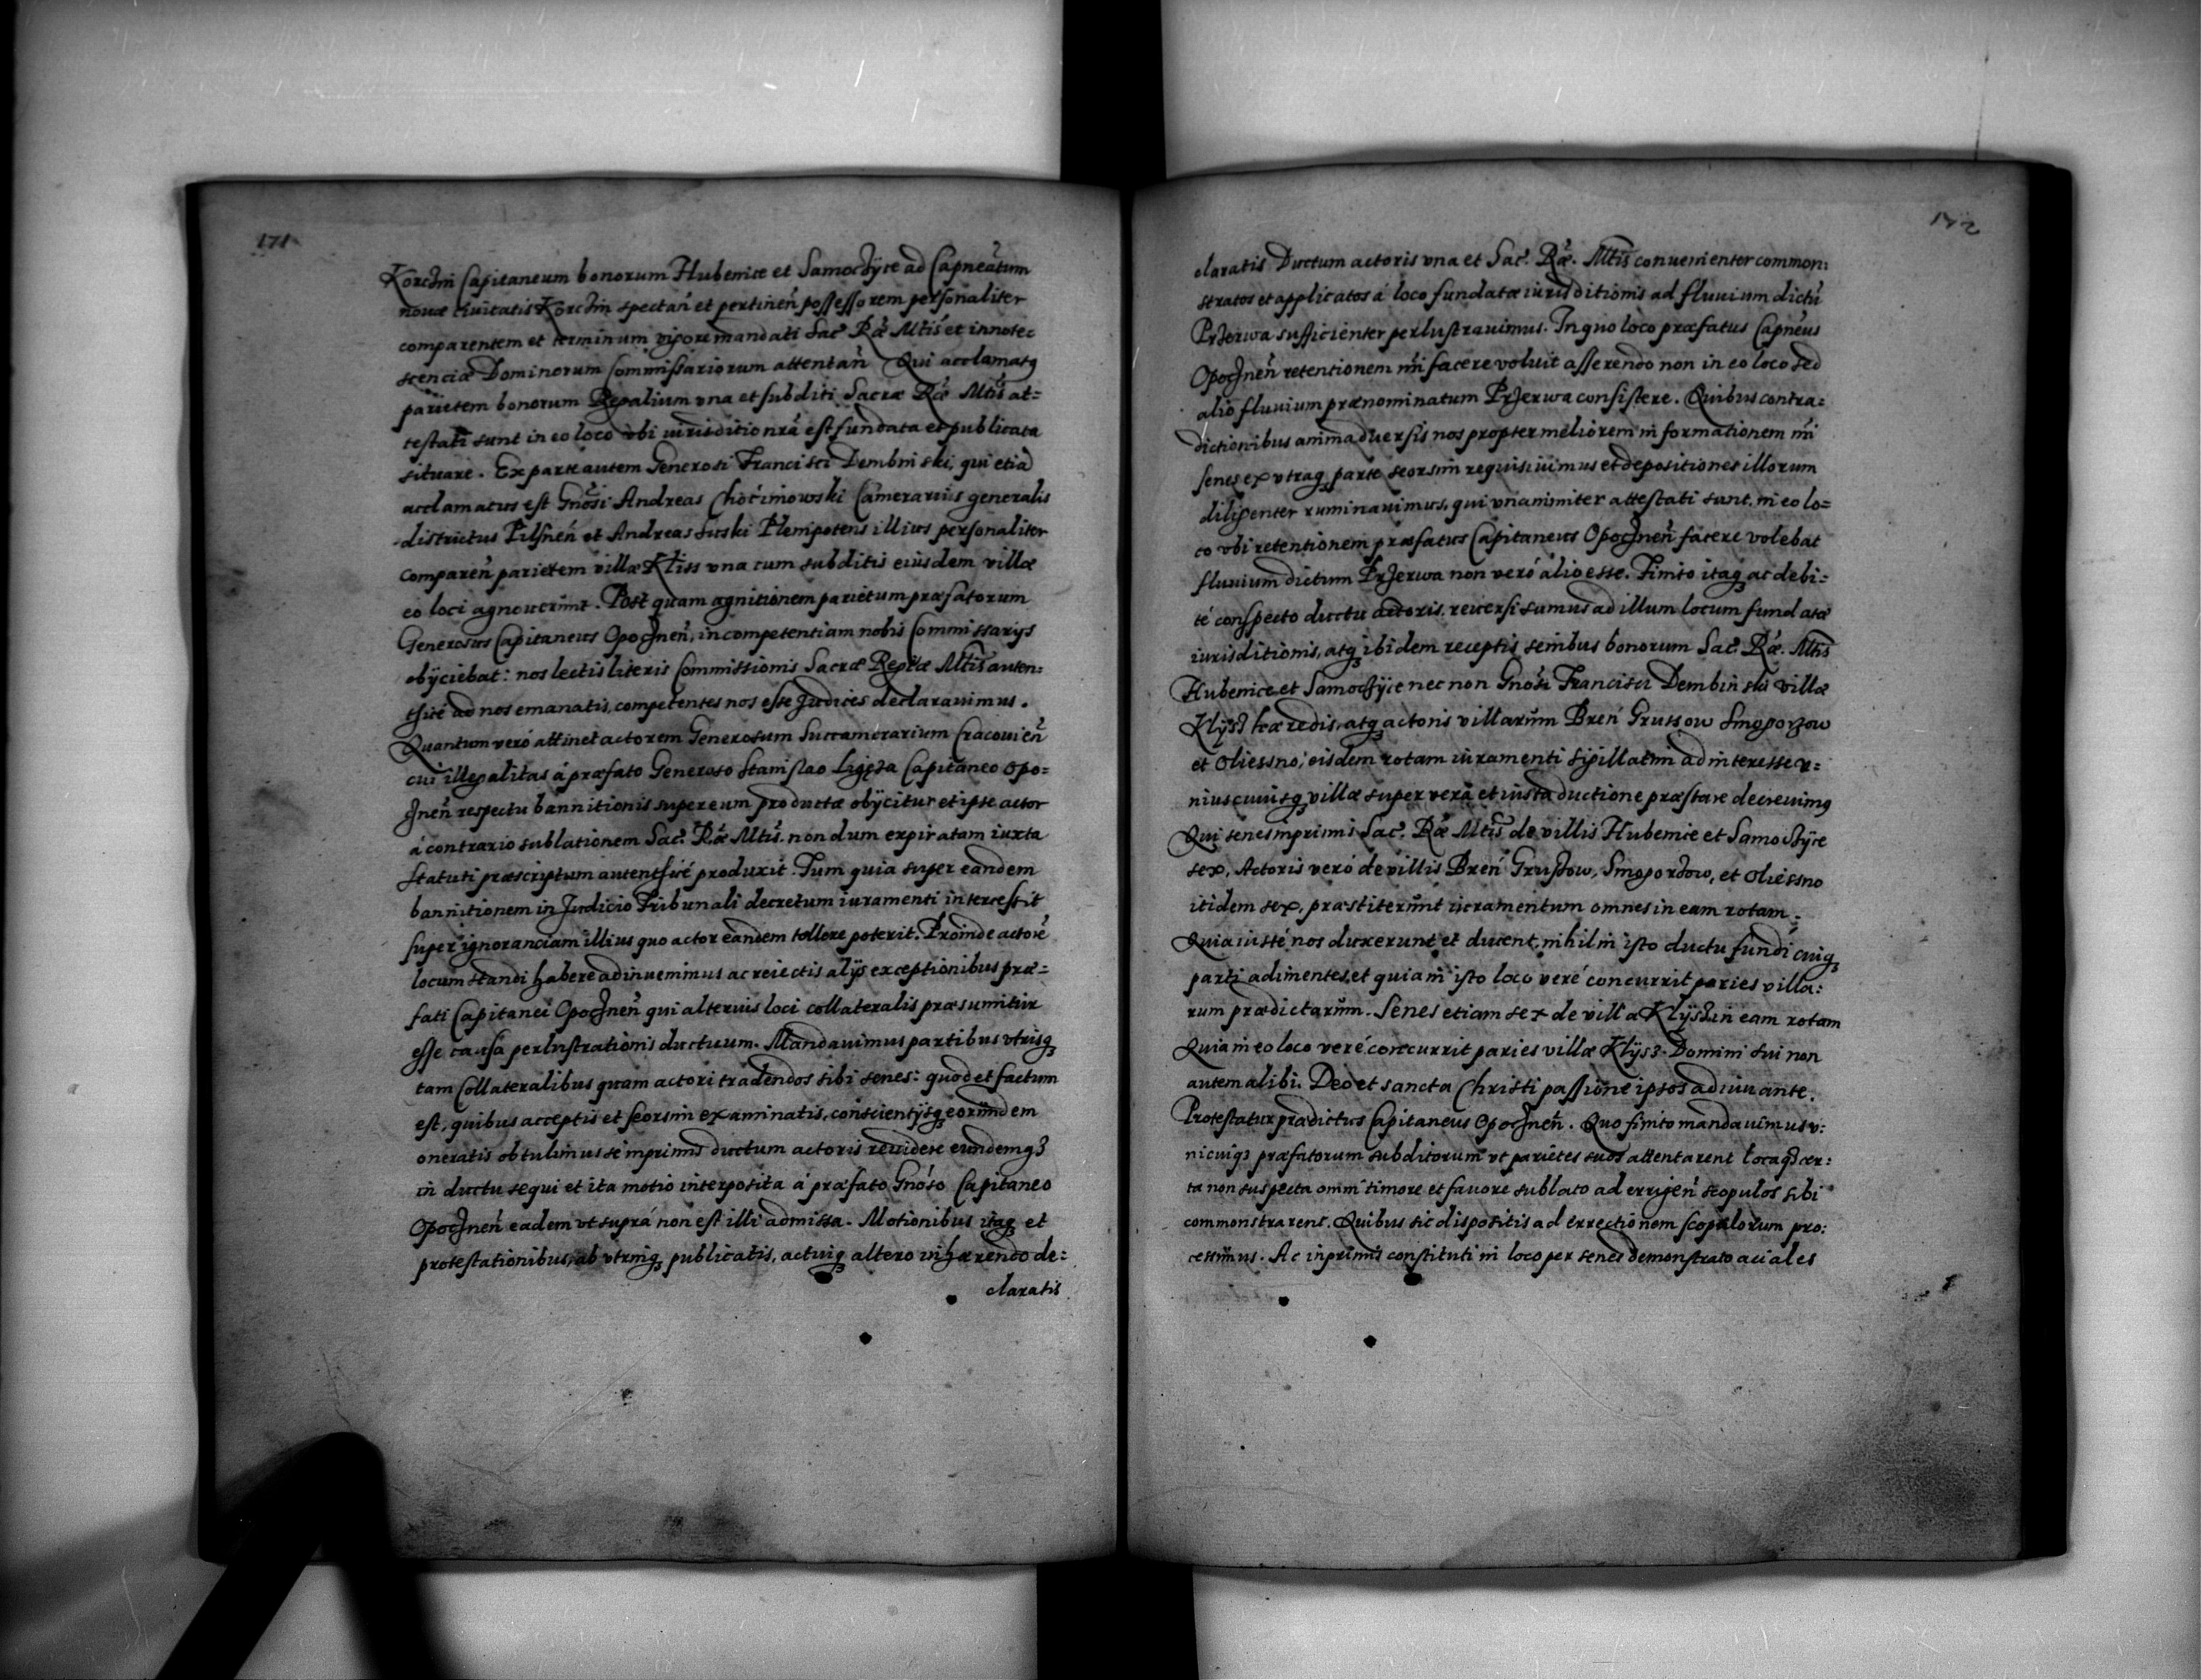 171
Korchin Capitaneum bonorum Hubenice et Samochÿce ad Capneatum
nouæ ciuitatis Korchin spectan̄ et pertinen̄ possessorem personaliter
comparentem et terminum vigore mandati Sac̄ Rǣ Mtis̄ et innotes
scenciæ Dominorum Commissariorum attentan̄ Qui acclamatq
parietem bonorum Regalium vna et subditi Sacræ Rǣ Mtis̄ at=
testati sunt in eo loco vbi iurisditio nrā est fundata et publicata
situare. Ex parte autem Generosi Francisci Dembinski, qui etiā
acclamatus est Gnōsi Andreas Choćimowski Camerarius generalis
districtus Pilsnen̄ et Andreas Suski Plenipotens illius personaliter
comparen̄ parietem villæ Kliss vna cum subditis eiusdem villæ
eo loci agnouerunt. Post quam agnitionem parietum præfatorum
Generosus Capitaneus Opocznen̄, incompetentiam nobis Commissarÿs
obÿciebat: nos lectis literis Commissionis Sacræ Regiæ Mtis̄ auten:
thicè ad nos emanatis, competentes nos esse Judices declarauimus.
Quantum verò attinet actorem Generosum Succamerarium Cracouien̄
cui illegalitas á præfato Generoso Stanislao Ligęza Capitaneo Opo=
cznen̄ respectu bannitionis super eum productæ obÿcitur et ipse actor
á contrario sublationem Sac̄ Rǣ Mtis̄ nondum expiratam iuxta
statuti præscriptum autenthicé produxit. Tum quia super eandem
bannitionem in Judicio Tribunali decretum iuramenti intercessit
super ignoranciam illius quo actor eandem tollere poterit. Proinde actorē
locum standi habere adinuenimus ac reiectis alÿs exceptionibus præ=
fati Capitanei Opocznen̄ qui alterius loci collateralis præsumitur
esse causa perlustrationis ductuum. Mandauimus partibus vtrisq
tam Collateralibus quam actori tradendos sibi senes: quod et factum
est, quibus acceptis et seorsim examinatis, conscientÿsq eorundem
oneratis obtulimus se inprimis ductum actoris reuidere eundemq3
in ductu sequi et ita motio interposita á præfato Gnōso Capitaneo
Opocznen̄ eadem vt suprá non est illi admissa. Motionibus itaq et
protestationibus, ab vtrinq publicatis, actuiq altero inhærendo de:
claratis
172
claratis Ductum actoris vna et Sac̄ Rǣ. Mtis̄ conuenienter common:
stratos et applicatos á loco fundatæ iurisditionis ad fluuium dictū
Przerwa sufficienter perlustrauimus. In quo loco præfatus Capneus
Opocznen̄ retentionem nr̄i facere voluit asserendo non in eo loco sed
alio fluuium prænominatum Przerwa consistere. Quibus contra=
dictionibus animaduersis nos propter meliorem informationem nr̄i
senes ex vtraq parte seorsim requisiuimus et depositiones illorum
diligenter ruminauimus, qui vnanimiter attestati sunt, in eo lo=
co vbi retentionem præfatus Capitaneus Opocznen̄ facere volebat
fluuium dictum Przerwa non veró alio esse. Finito itaq ac debi=
té conspecto ductu actoris, reuersi sumus ad illum locum fundatæ
iurisditionis, atq ibidem receptis senibus bonorum Sac̄ Rǣ. Mtis̄
Hubenice et Samochÿce nec non Gnōsi Francisci Dembinski villæ
Klÿsz hæredis, atq actoris villarum Breń Grussow Smogorzow
et Oliessno, eisdem rotam iuramenti sigillatim ad interesse v=
niuscuiusq villæ super vera et iusta ductione præstare decreuimq
Qui senes inprimis Sac̄ Rǣ Mtis̄ de villis Hubenice et Samochÿce
sex, Actoris veró de villis Breń Gruszow, Smogorzow, et Oliessno
itidem sex, præstiterunt iuramentum omnes in eam rotam.
Quia iusté nos duxerunt et ducent, nihil in isto ductu fundi cuiq
parti adimentes, et quia in isto loco veré concurrit paries villa:
rum prædictarum. Senes etiam sex de villa Klÿsz in eam rotam
Quia in eo loco veré concurrit paries villæ Klÿsz Domini sui non
autem alibi. Deo et sancta Christi passione ipsos adiuuante.
Protestatur prædictus Capitaneus Opocznen̄. Quo finito mandauimus v:
nicuiq3 præfatorum subditorum vt parietes suos attentarent locaq3 cer:
ta non suspecta omni timore et fauore sublato ad errigen̄ scopulos sibi
commonstrarent. Quibus sic dispositis ad errectionem scopulorum pro:
cessimus. Ac inprimis constituti in loco per senes demonstrato aciales